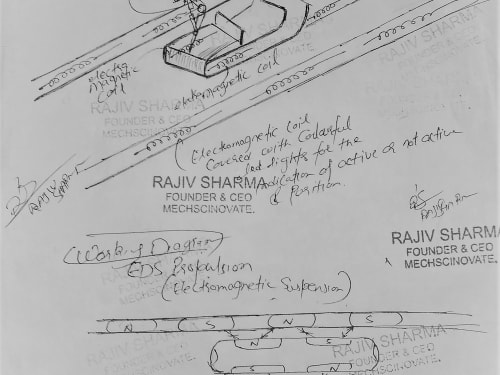 Electro
Magnetic
Coil
electromagnetic coil
RAJIV SHARMA
FOUNDER & CEO
MECHSCINOVATE.
RAJIV SHARMA
FOUNDER & CEO
MECHSCINOVATE.
RAJIV SHARMA
FOUNDER & CEO
MECHSCINOVATE.
Electromagnetic Coil
Covered with Colourful
Led Lights for the
indication of active or not active
& Position.
RAJIV SHARMA
FOUNDER & CEO
MECHSCINOVATE.
RAJIV SHARMA
FOUNDER & CEO
MECHSCINOVATE.
(Working Diagram)
EDS Propulsion
(Electromagnetic Suspension)
N S N S
RAJIV SHARMA
FOUNDER & CEO
MECHSCINOVATE.
S N
RAJIV SHARMA
FOUNDER & CEO
MECHSCINOVATE.
S N